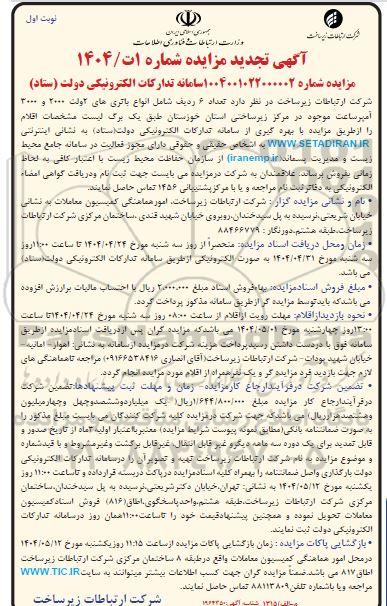 نوبت اول
جمهوری اسلامی ایران
وزارت ارتباطات و فناوری اطلاعات
شرکت ارتباطات زیرساخت
آگهی تجدید مزایده شماره ۱ت/۱۴۰۴
مزایده شماره ۱۰۰۴۰۰۱۰۲۲۰۰۰۰۰۲سامانه تدارکات الکترونیکی دولت (ستاد)
شرکت ارتباطات زیرساخت در نظر دارد تعداد ۶ ردیف شامل انواع باتری های ۲ولت ۲۰۰۰ و ۳۰۰۰
آمپرساعت موجود در مرکز زیرساختی استان خوزستان طبق یک برگ لیست مشخصات اقلام
را ازطریق مزایده با بهره گیری از سامانه تدارکات الکترونیکی دولت(ستاد) به نشانی اینترنتی
WWW.SETADIRAN.IR به اشخاص حقیقی و حقوقی دارای مجوز فعالیت در سامانه جامع محیط
زیست و مدیریت پسماند(iranemp.ir) از سازمان حفاظت محیط زیست با اعتبار کافی به لحاظ
زمانی بفروش برساند. علاقمندان به شرکت درمزایده می بایست جهت ثبت نام ودریافت گواهی امضاء
الکترونیکی به دفاتر ثبت نام مراجعه و یا با مرکزپشتیبانی ۱۴۵۶ تماس حاصل نمایند.
• نام و نشانی مزایده گزار : شرکت ارتباطات زیرساخت، امورهماهنگی کمیسیون معاملات به نشانی
خیابان شریعتی،نرسیده به پل سیدخندان،روبروی خیابان شهید قندی ،ساختمان مرکزی شرکت ارتباطات
زیرساخت،طبقه هشتم،دورنگار : ۸۸۴۶۶۷۷۹
• زمان ومحل دریافت اسناد مزایده: منحصراً از روز سه شنبه مورخ ۱۴۰۴/۰۴/۲۴ تا ساعت ۱۱:۰۰روز
سه شنبه مورخ ۱۴۰۴/۰۴/۳۱ به صورت الکترونیکی ازطریق سامانه تدارکات الکترونیکی دولت(ستاد)
می باشد.
• مبلغ فروش اسنادمزایده: بهاءفروش اسناد مبلغ ۲،۰۰۰،۰۰۰ ریال با احتساب مالیات برارزش افزوده
می باشدکه بایدتوسط مزایده گر ازطریق سامانه مذکور پرداخت گردد.
• نحوه بازدیدازاقلام: مهلت رویت ازاقلام از ساعت ۰۸:۰۰ روز سه شنبه مورخ ۱۴۰۴/۰۴/۲۴تا ساعت
۱۳:۰۰روز چهارشنبه مورخ ۱۴۰۴/۰۵/۰۱ می باشدکه مزایده گران پس ازدریافت اسنادمزایده ازطریق
سامانه فوق با دردست داشتن رسیدپرداخت هزینه شرکت درمزایده ازسامانه به نشانی : اهواز- امانیه-
خیابان شهید پودات- شرکت ارتباطات زیرساخت(آقای انصاری ۰۹۱۶۶۵۳۸۴۱۶) مراجعه تاهماهنگی های
لازم جهت بازدید فرد مزایده گر و یک نفرهمراه از اقلام مورد مزایده انجام گردد.
• تضمین شرکت درفرآیندارجاع کارمزایده- زمان و مهلت ثبت پیشنهادها:تضمین شرکت
درفرآیندارجاع کار مزایده مبلغ ۱/۶۴۴/۸۰۰/۰۰۰ریال( یک میلیاردوششصدوچهل وچهارمیلیون
وهشتصدهزارریال) می باشدکه جهت شرکت درمزایده کلیه شرکت کنندگان می بایست مبلغ مذکور را
به صورت ضمانتنامه بانکی(مطابق نمونه پیوست شرایط مزایده) معتبرباعتبار اولیه۳ماه از تاریخ صدور و
قابل تمدید برای یک دوره سه ماهه دیگرو غیر قابل انتقال،غیرقابل برگشت وغیرمشروط و با قیدشماره
و موضوع مزایده به نام شرکت ارتباطات زیرساخت تهیه و تصویر آن را درسامانه تدارکات الکترونیکی
دولت بارگذاری واصل ضمانتنامه را بهمراه کلیه اسنادمزایده درپاکت دربسته قرارداده و تاساعت ۱۱:۰۰ روز
یکشنبه مورخ ۱۴۰۴/۰۵/۱۲ به نشانی: تهران،خیابان دکترشریعتی،نرسیده به پل سیدخندان،ساختمان
مرکزی شرکت ارتباطات زیرساخت،طبقه هشتم،واحدپاسخگوی،اطاق(۸۱۶) فروش اسنادکمیسیون
معاملات تحویل نموده و همچنین پیشنهادقیمت خود را تاساعت۱۱:۰۰همان روز درسامانه تدارکات
الکترونیکی دولت ثبت نمایند.
• بازگشایی پاکات مزایده : زمان بازگشایی پاکات مزایده ازساعت ۱۱:۱۵ روزیکشنبه مورخ ۱۴۰۴/۰۵/۱۲
درمحل امور هماهنگی کمیسیون معاملات واقع درطبقه ۸ ساختمان مرکزی شرکت ارتباطات زیرساخت
اطاق ۸۱۷ می باشد.ضمناً مزایده گران جهت کسب اطلاعات بیشتر میتوانند به سایت WWW.TIC.IR
مراجعه ویا باشماره تلفن۸۸۱۱۳۸۰۹ تماس حاصل نمایند.
شرکت ارتباطات زیرساخت